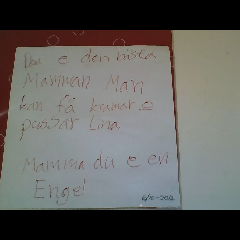 Du e den bästa
Mamman Man
kan få kramar o
pussar Lina
Mamma du e en
Engel